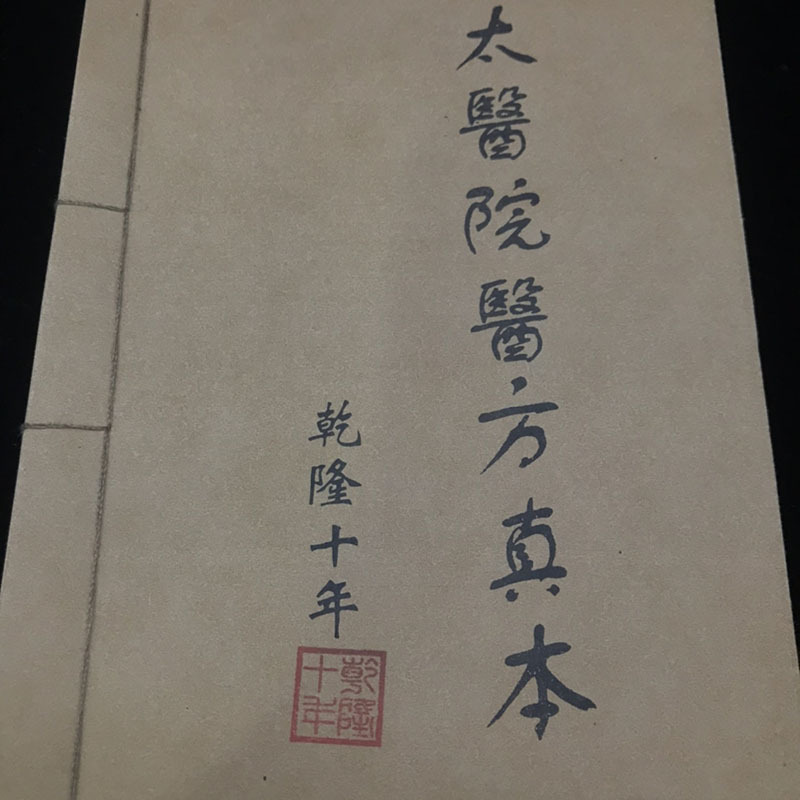 太醫院醫方真本
乾隆十年
乾隆十年